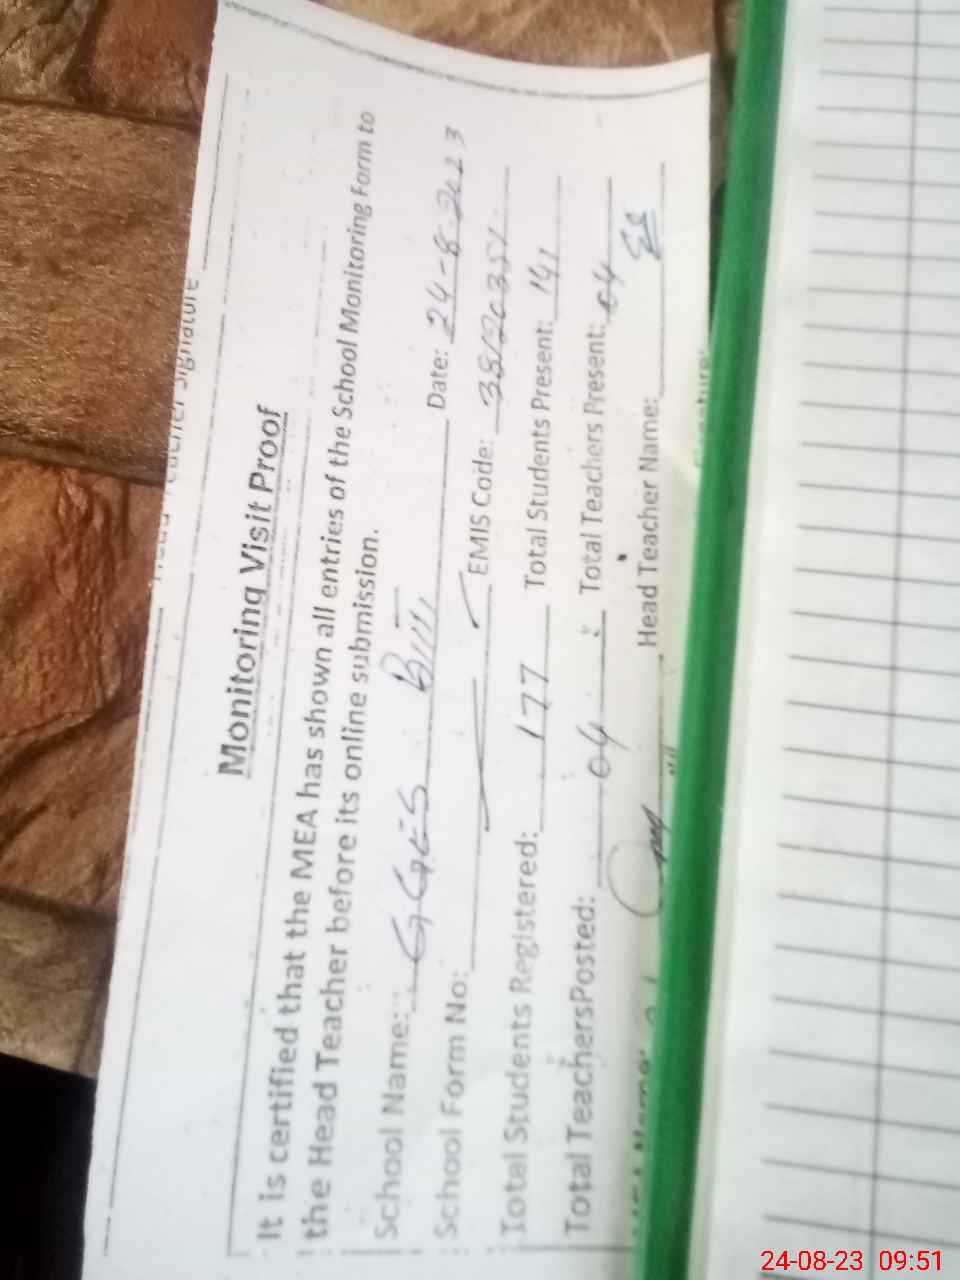 Teacher Signature
Monitoring Visit Proof
It is certified that the MEA has shown all entries of the School Monitoring Form to
the Head Teacher before its online submission.
School Name: GGES Date: 24-8-2023
School Form No: EMIS Code:
Total Students Registered: 177 Total Students Present: 141
Total TeachersPosted: 04 Total Teachers Present: 04
Head Teacher Name:
24-08-23 09:51